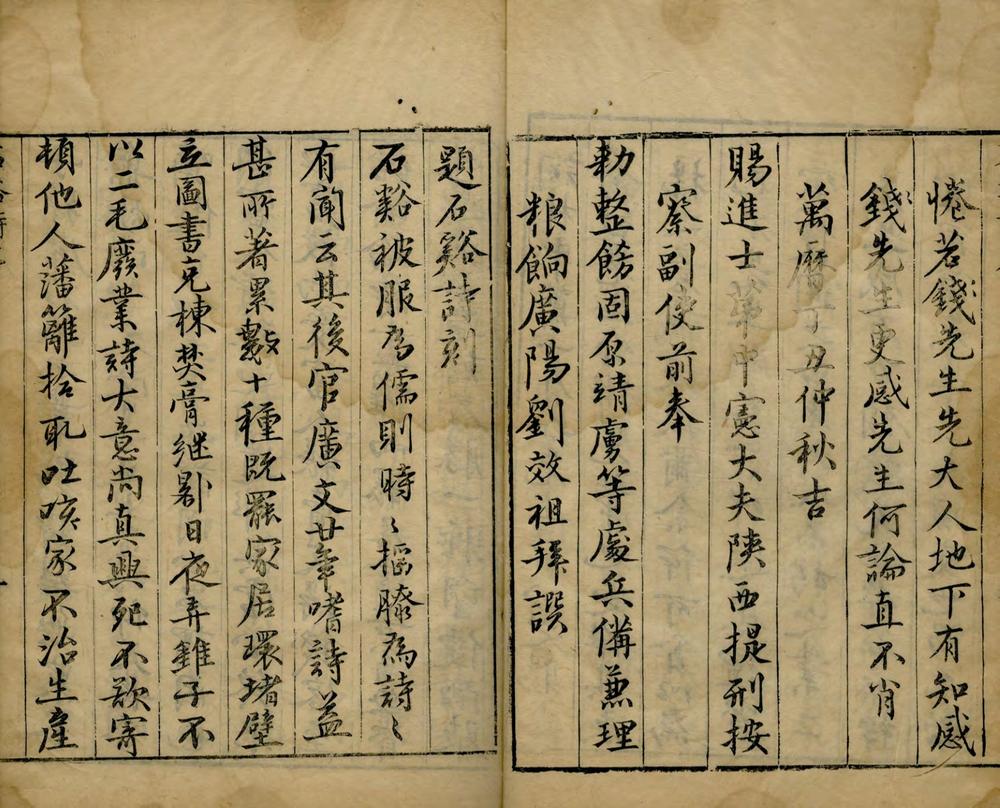 惓若錢先生先大人地下有知感
錢先生更感先生何論直不肖
萬曆丁丑仲秋吉
賜進士第中憲大夫陝西提刑按
察副使前奉
勑整飭固原靖虜等處兵備兼理
粮餉廣陽劉效祖拜譔
題石谿詩刻
石谿被服為儒則時〻搖膝為詩〻
有聞云其後官廣文廿年嗜詩益
甚所著累數十種既罷家居環堵壁
立圖書充棟焚膏継晷日夜弄錐子不
以二毛廢業詩大意尚真興死不歆寄
頓他人藩籬拾取吐咳家不治生產